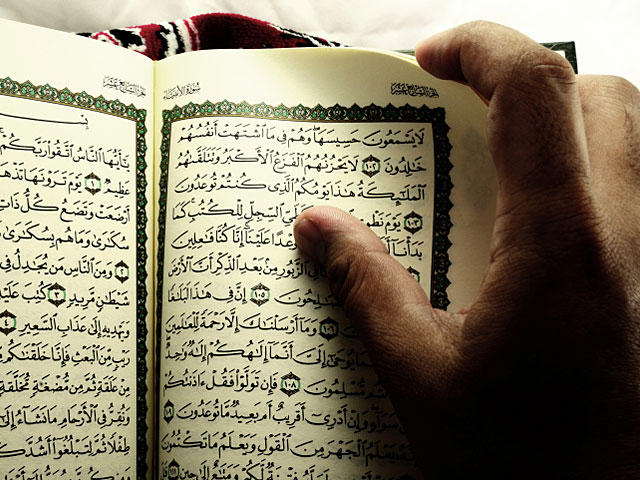 الجزء السابع عشر
سورة الأنبياء
لَا يَسْمَعُونَ حَسِيسَهَا وَهُمْ فِى مَا ٱشْتَهَتْ أَنفُسُهُمْ
خَٰلِدُونَ ١٠٢ لَا يَحْزُنُهُمُ ٱلْفَزَعُ ٱلْأَكْبَرُ وَتَتَلَقَّىٰهُمُ
ٱلْمَلَٰٓئِكَةُ هَٰذَا يَوْمُكُمُ ٱلَّذِى كُنتُمْ تُوعَدُونَ
١٠٣ يَوْمَ نَطْوِى ٱلسِّجِلِّ لِلْكُتُبِ كَمَا
بَدَأْنَآ وَعْدًا عَلَيْنَآ إِنَّا كُنَّا فَٰعِلِينَ
فِى ٱلزَّبُورِ مِنۢ بَعْدِ ٱلذِّكْرِ أَنَّ ٱلْأَرْضَ
١٠٥ إِنَّ فِى هَٰذَا لَبَلَٰغًا
١٠٦ وَمَآ أَرْسَلْنَٰكَ إِلَّا رَحْمَةً لِّلْعَٰلَمِينَ
يُوحَىٰٓ إِلَىَّ أَنَّمَآ إِلَٰهُكُمْ إِلَٰهٌ وَٰحِدٌ
مُّسْلِمُونَ ١٠٨ فَإِن تَوَلَّوْا۟ فَقُلْ ءَاذَنتُكُمْ
سَوَآءٍ وَإِنْ أَدْرِىٓ أَقَرِيبٌ أَم بَعِيدٌ مَّا تُوعَدُونَ ١٠٩
يَعْلَمُ ٱلْجَهْرَ مِنَ ٱلْقَوْلِ وَيَعْلَمُ مَا تَكْتُمُونَ
فِتْنَةٌ لَّكُمْ وَمَتَٰعٌ إِلَىٰ حِينٍ ١١١
الجزء السابع عشر
يَٰٓأَيُّهَا ٱلنَّاسُ ٱتَّقُوا۟ رَبَّكُمْ
عَظِيمٌ ١ يَوْمَ تَرَوْنَهَا تَذْهَلُ
أَرْضَعَتْ وَتَضَعُ كُلُّ ذَاتِ
سُكَٰرَىٰ وَمَا هُم بِسُكَٰرَىٰ
٢ وَمِنَ ٱلنَّاسِ مَن يُجَٰدِلُ فِى
شَيْطَٰنٍ مَّرِيدٍ ٣ كُتِبَ عَلَيْهِ
وَيَهْدِيهِ إِلَىٰ عَذَابِ ٱلسَّعِيرِ ٤
رَيْبٍ مِّنَ ٱلْبَعْثِ فَإِنَّا خَلَقْنَٰكُم
مِنْ عَلَقَةٍ ثُمَّ مِن مُّضْغَةٍ مُّخَلَّقَةٍ
وَنُقِرُّ فِى ٱلْأَرْحَامِ مَا نَشَآءُ إِلَىٰٓ
طِفْلًا ثُمَّ لِتَبْلُغُوٓا۟ أَشُدَّكُمْ